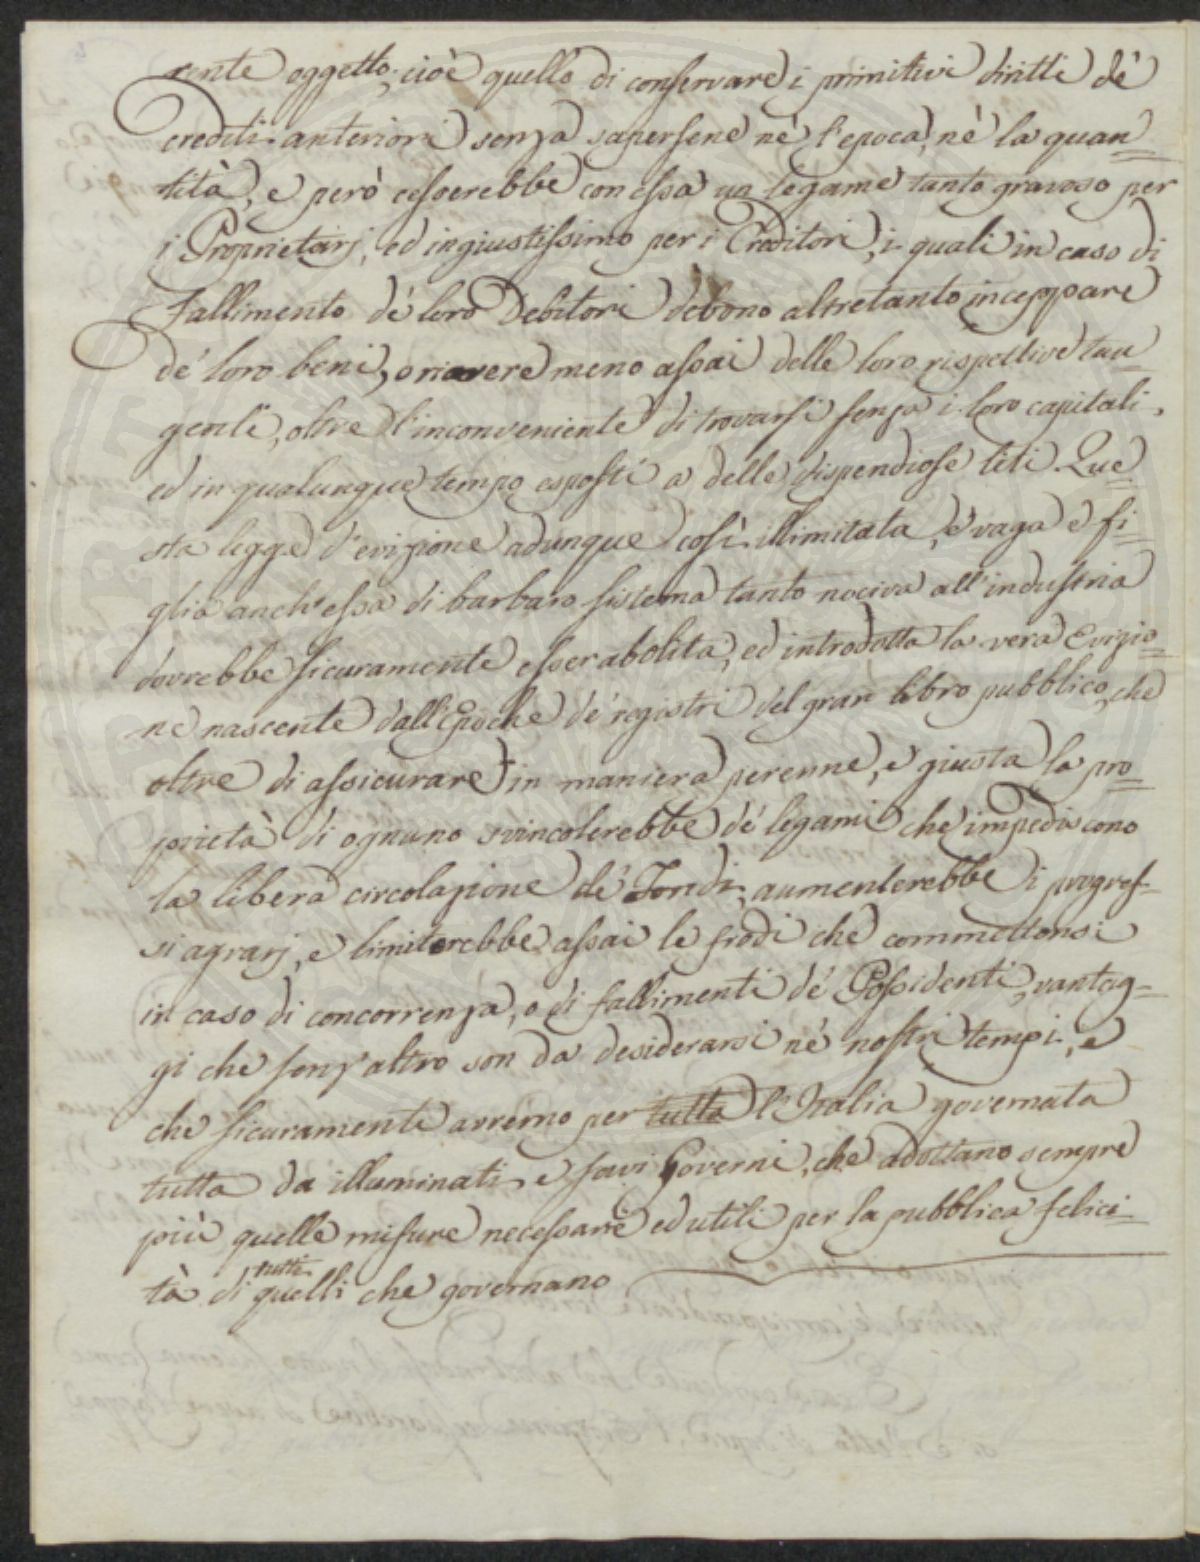 rente oggetto, cioè quello di conservare i primitivi diritti de'
crediti anteriori senza sapersene nè l'epoca, nè la quan=
tità, e però cesserebbe con essa un legame tanto gravoso per
i Proprietarj, ed ingiustissimo per i Creditori, i quali in caso di
Fallimento de' loro Debitori debono altretanto inceppare
de' loro beni, o ricevere meno assai delle loro rispettive tan=
genti, oltre l'inconveniente di trovarsi senza i loro capitali,
ed in qualunque tempo esposti a delle dispendiose liti. Que=
sta legge d'evizione adunque così illimitata, e vaga e fi=
glia anch'essa di barbaro sistema tanto nociva all'industria
dovrebbe sicuramente esser abolita, ed introdotta la vera Evizio=
ne nascente dall'Epoche de' registri del gran libro pubblico, che
oltre di assicurare in maniera perenne, e giusta la pro=
prietà di ognuno svincolerebbe de' legami che impediscono
la libera circolazione de' Fondi, aumenterebbe i progres=
si agrarj, e limiterebbe assai le frodi che commettonsi
in caso di concorrenza, o di fallimenti de' Possidenti, vantag=
gi che senz'altro son da desiderarsi ne' nostri tempi, e
che sicuramente avremo per tutta l'Italia governata
tutta da illuminati, e savi Governi, che adottano sempre
più quelle misure necessarie ed utili per la pubblica felici=
tà di tutti quelli che governano